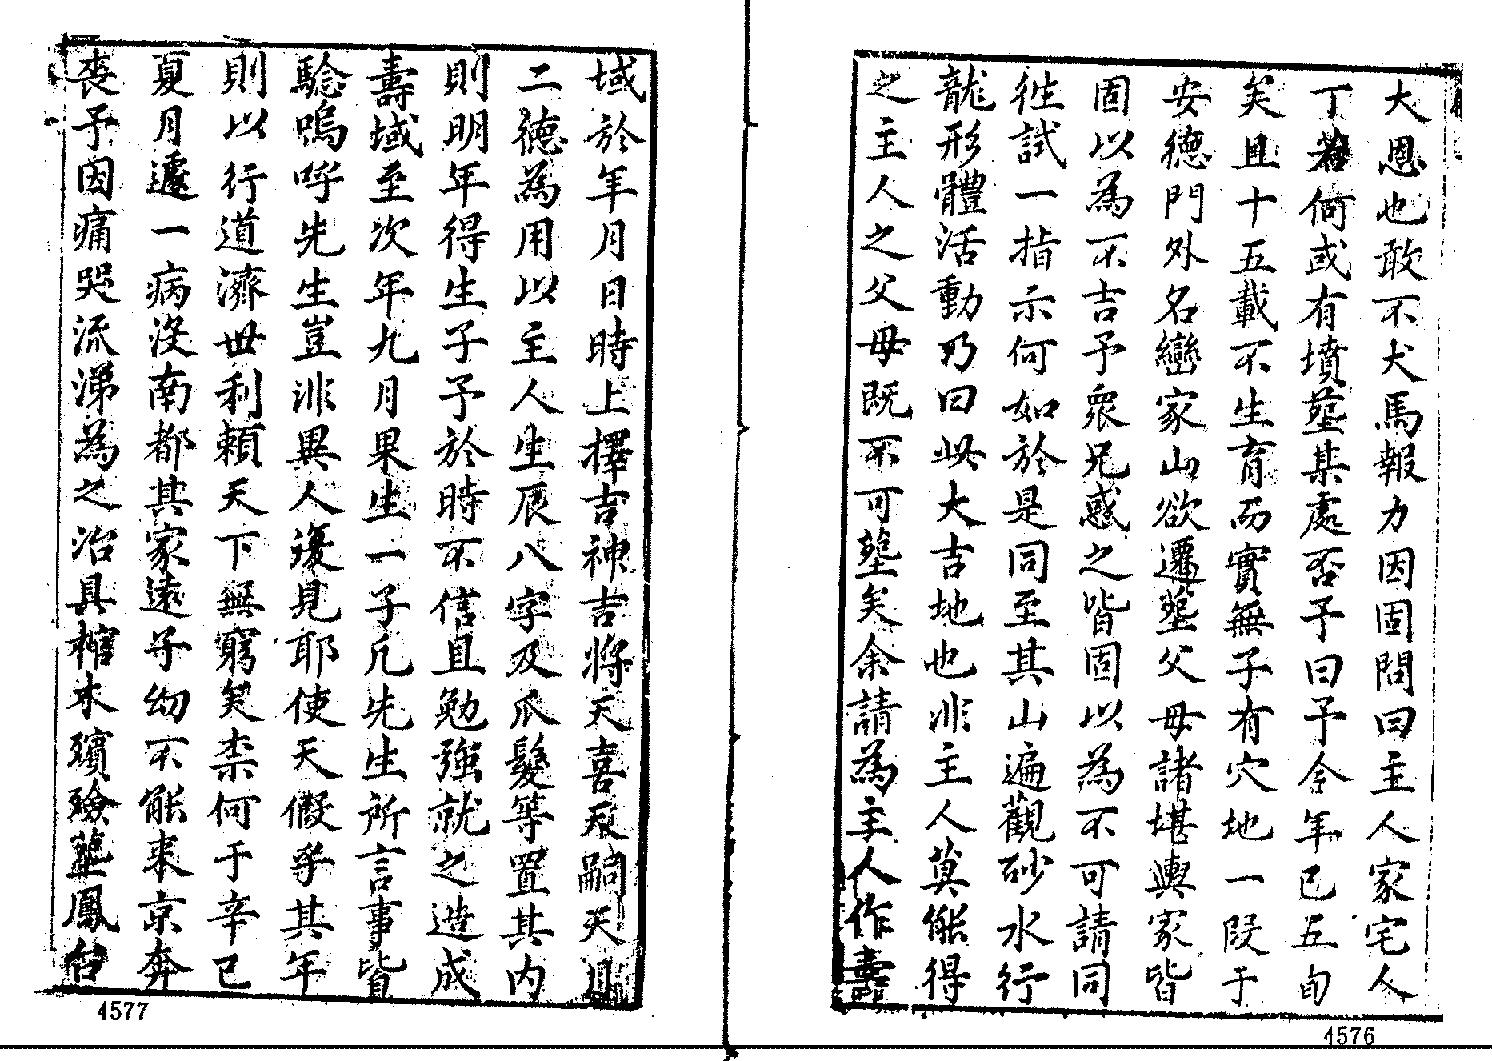 大恩也敢不犬馬報力因固問曰主人家宅人
丁若何或有墳塋某處否予曰予今年已五旬
矣且十五載不生育而實無子有穴地一段于
安德門外名巒家山欲遷塋父母諸堪輿家皆
固以為不吉予眾兄惑之皆固以為不可請同
徃試一指示何如於是同至其山遍觀砂水行
龍形體活動乃曰此大吉地也非主人莫能得
之主人之父母既不可塟矣余請為主人作壽
域於年月日時上擇吉神吉將天喜天嗣天月
二德為用以主人生辰八字及爪髮等置其内
則明年得生子予於時不信且勉強就之造成
壽域至次年九月果生一子凢先生所言事皆
騐嗚呼先生豈非異人復見耶使天假乎其年
則以行道濟世利頼天下無窮矣柰何于辛已
夏月遘一病沒南都其家遠子幼不能来京奔
喪予因痛哭流涕為之治具棺木殯殮塟鳳台
4577
4576